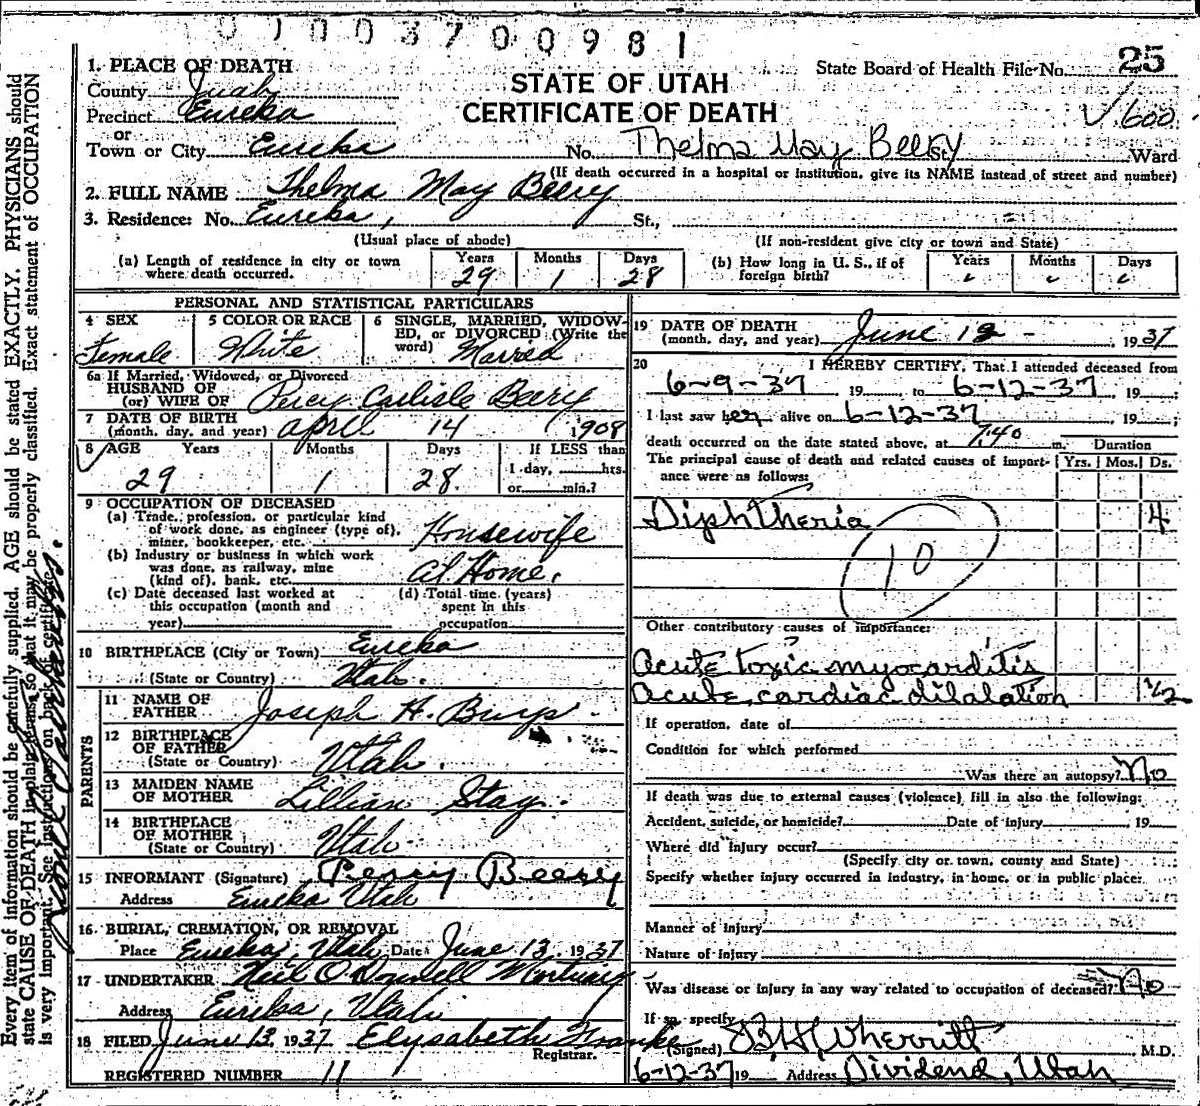 01003700981
1. PLACE OF DEATH
County Juab
Precinct Eureka
or
Town or City Eureka No. Thelma May Beery St. Ward
STATE OF UTAH
CERTIFICATE OF DEATH
State Board of Health File No. 25
V.600
(If death occurred in a hospital or institution, give its NAME instead of street and number)
2. FULL NAME Thelma May Beery
3. Residence: No. Eureka, St.,
(Usual place of abode) (If non-resident give city or town and State)
(a) Length of residence in city or town where death occurred. Years 29 Months 1 Days 28
(b) How long in U. S., if of foreign birth? Years Months Days
PERSONAL AND STATISTICAL PARTICULARS
4 SEX Female
5 COLOR OR RACE White
6 SINGLE, MARRIED, WIDOWED, OR DIVORCED (Write the word) Married
6a If Married, Widowed, or Divorced
HUSBAND OF
(or) WIFE OF Percy Carlisle Beery
7 DATE OF BIRTH
(month, day, and year) April 14 1908
8 AGE Years 29 Months 1 Days 28 If LESS than
1 day, hrs.
or min.?
9 OCCUPATION OF DECEASED
(a) Trade, profession, or particular kind
of work done, as engineer (type of),
miner, bookkeeper, etc. Housewife
(b) Industry or business in which work
was done, as railway, mine
(kind of), bank, etc. at Home.
(c) Date deceased last worked at
this occupation (month and
year)
(d) Total time (years)
spent in this
occupation
10 BIRTHPLACE (City or Town) Eureka
(State or Country) Utah.
PARENTS
11 NAME OF
FATHER Joseph H. Burys
12 BIRTHPLACE
OF FATHER
(State or Country) Utah.
13 MAIDEN NAME
OF MOTHER Lillian Stay.
14 BIRTHPLACE
OF MOTHER
(State or Country) Utah.
15 INFORMANT (Signature) Percy Beery
Address Eureka Utah
16 BURIAL, CREMATION, OR REMOVAL
Place Eureka, Utah Date June 13 1937
17 UNDERTAKER Neil O'Donnell Mortuary
Address Eureka, Utah
18 FILED June 13 1937 Elysabeth Franke
Registrar.
REGISTERED NUMBER 11
19 DATE OF DEATH
(month, day, and year) June 12 - , 1937
20 I HEREBY CERTIFY, That I attended deceased from
6-9-37 19 , to 6-12-37 19 ;
I last saw her alive on 6-12-37 , 19 ;
death occurred on the date stated above, at 7:40 m. Duration
The principal cause of death and related causes of importance were as follows: Yrs. Mos. Ds.
Diphtheria 4
10
Other contributory causes of importance:
Acute toxic myocarditis
Acute cardiac dilatation 1/2
If operation, date of
Condition for which performed
Was there an autopsy? No
If death was due to external causes (violence) fill in also the following:
Accident, suicide, or homicide? Date of injury 19
Where did injury occur?
(Specify city or town, county and State)
Specify whether injury occurred in industry, in home, or in public place:
Manner of injury
Nature of injury
Was disease or injury in any way related to occupation of deceased? No
If so, specify
(Signed) B H Wherritt M.D.
6-12-37 19 Address Dividend, Utah
Every item of information should be carefully supplied. AGE should be stated EXACTLY. PHYSICIANS should
state CAUSE OF DEATH in plain terms, so that it may be properly classified. Exact statement of OCCUPATION
is very important. See instructions on back of certificate.